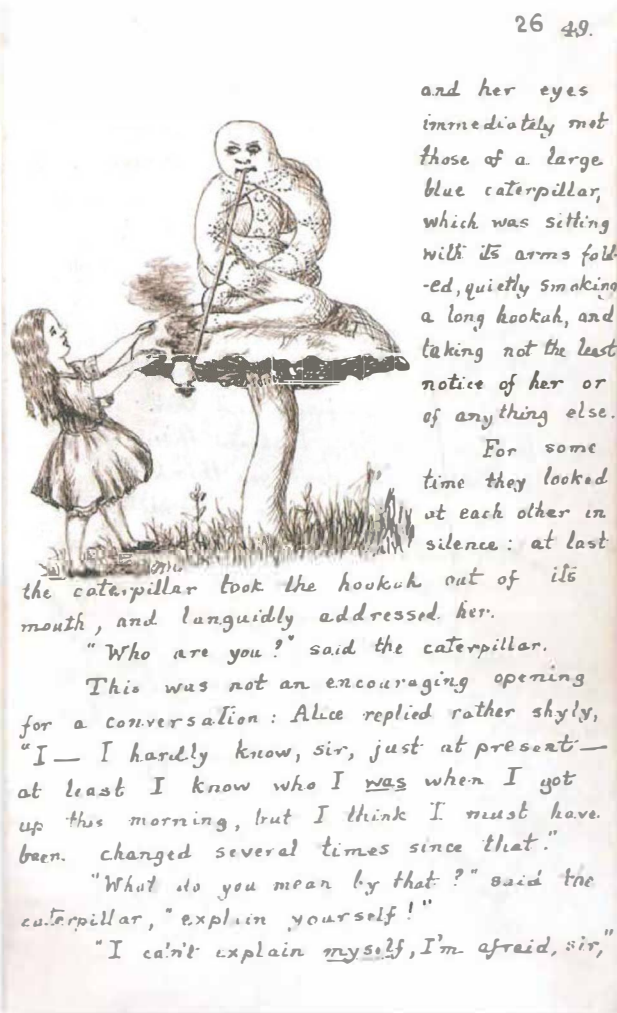 26 49.
and her eyes
immediately met
those of a large
blue caterpillar,
which was sitting
with its arms fold-
-ed, quietly smoking
a long hookah, and
taking not the least
notice of her or
of anything else.
For some
time they looked
at each other in
silence: at last
the caterpillar took the hookah out of its
mouth, and languidly addressed her.
"Who are you?" said the caterpillar.
This was not an encouraging opening
for a conversation: Alice replied rather shyly,
"I— I hardly know, sir, just at present—
at least I know who I was when I got
up this morning, but I think I must have
been changed several times since that."
"What do you mean by that?" said the
caterpillar, "explain yourself!"
"I ca'n't explain myself, I'm afraid, sir,"